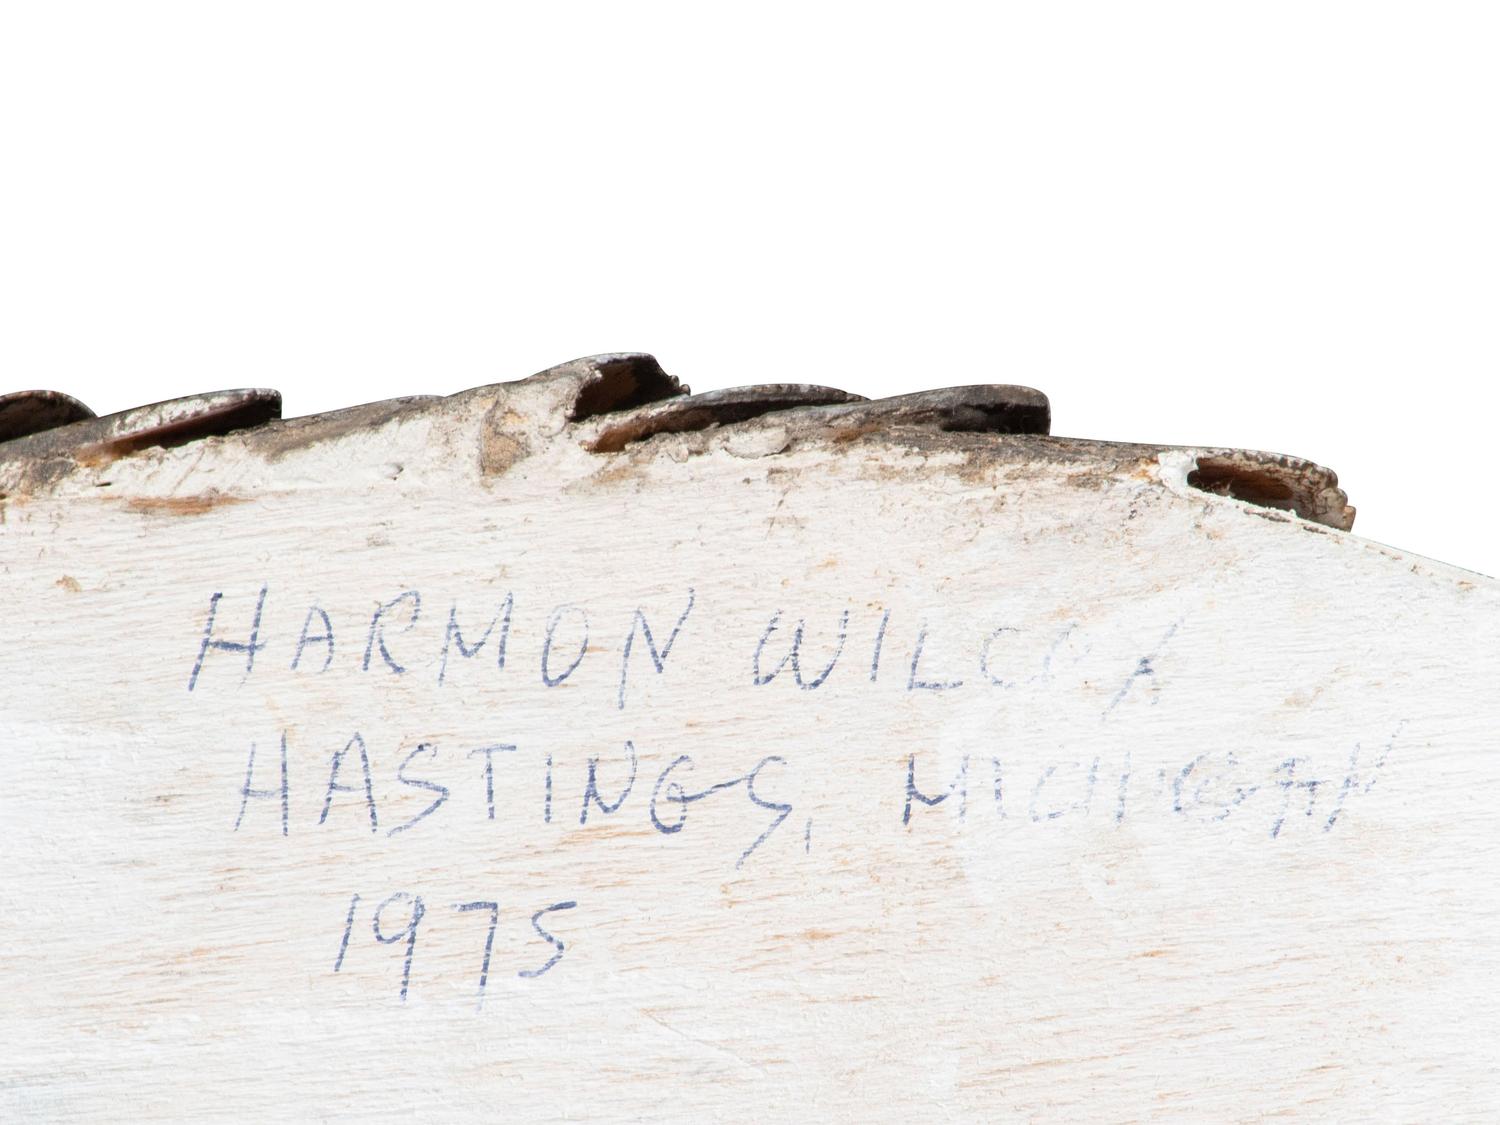 HARMON WILCOX
HASTINGS, MICHIGAN
1975